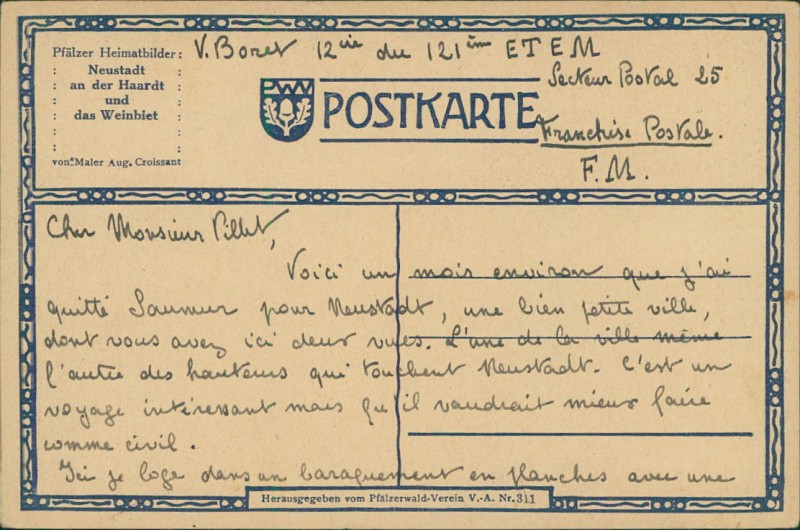 Pfälzer Heimatbilder:
Neustadt
an der Haardt
und
das Weinbiet
von Maler Aug. Croissant
V. Boret 12cie du 121ème E T E M
Secteur Postal 25
Franchise Postale.
F.M.
PWV
POSTKARTE
Cher Monsieur Pillet,
Voici un mois environ que j'ai
quitté Saumur pour Neustadt, une bien petite ville,
dont vous avez ici deux vues. L'une de la ville même
l'autre des hauteurs qui touchent Neustadt. C'est un
voyage intéressant mais qu'il vaudrait mieux faire
comme civil.
Ici je loge dans un baraquement en planches avec une
Herausgegeben vom Pfälzerwald-Verein V.-A. Nr. 311